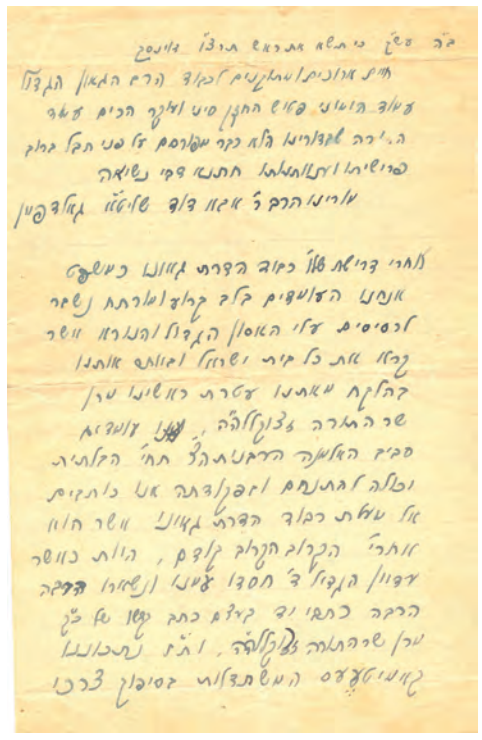 ב"ה עש"ק כי תשא את ראש תרצ"ו דווינסק
חיים ארוכים ומתוקנים לכבוד הרב הגאון הגדול
עמוד הימני פטיש החזק סיני ועוקר הרים עמד
ה. ירה שבדורינו הלא כבר מפורסם על פני תבל ברוב
פרישותו וענוותנותו חתנא דבי נשיאה
מורינו הרב ר' אבא דוד שליט"א גאלדפיין
אחרי דרישת שלו' כבוד הדרת גאונו כמשפט
אנחנו העומדים בלב קרוע ומורתח נשבר
לרסיסים עלי האסון הגדול והנורא אשר
קרא את כל בית ישראל וביותר אותנו
בהלקח מאתנו עטרת ראשינו מרן
שר התורה זצוקללה"ה, עומדים
סביב האלמנה הרבנית תחי' הבלתית
יכולה להתנחם ובפקודתה אנו כותבים
אל מעלת כבוד הדרת גאוני אשר הוא
אחרי הקרוב הקרוב קודם, היות כאשר
עדיין הגדיל ד' חסדו עמנו ונשארו הרבה
הרבה כתבי יד בעצם כתב קדשו של כ"ק
מרן שר התורה זצוקללה"ה. ות"ת נתכוננו
קאמיטעעס המשתדלות בסיפוק צרכו